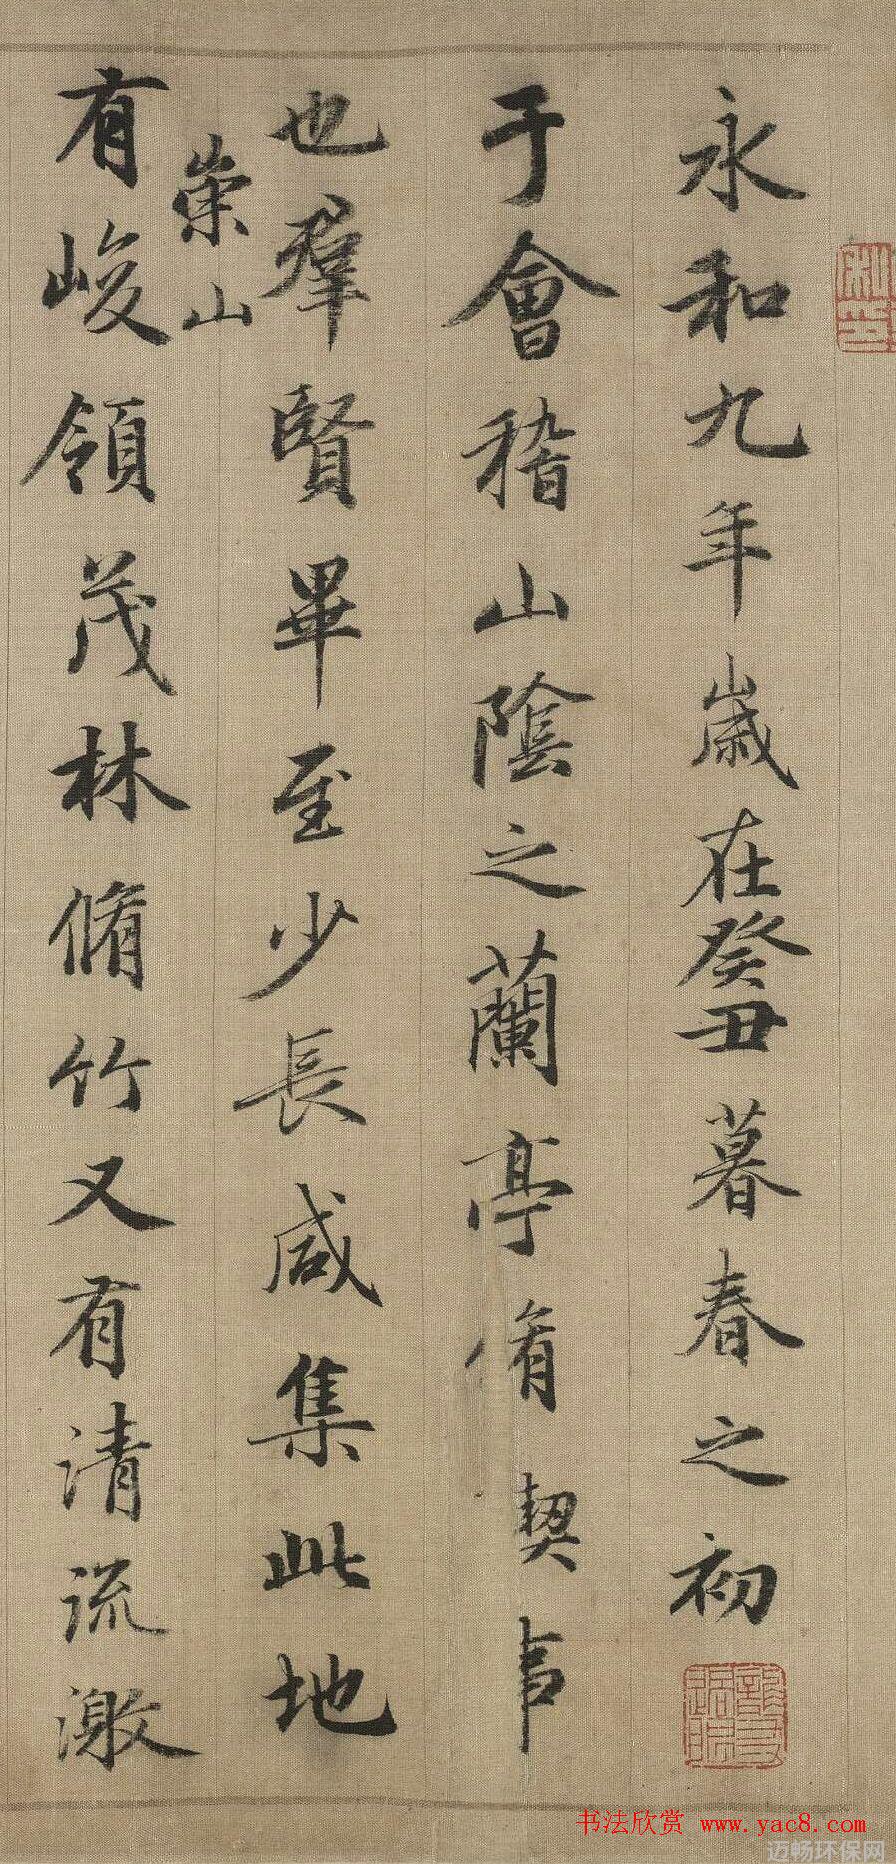 永和九年歲在癸丑暮春之初
于會稽山陰之蘭亭脩契事
也羣賢畢至少長咸集此地
崇山
有峻領茂林脩竹又有清流激
书法欣赏 www.yac8.com
迈畅环保网